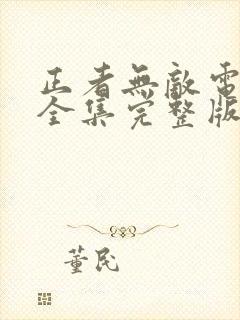 正者無敵電
全集完整版
董民